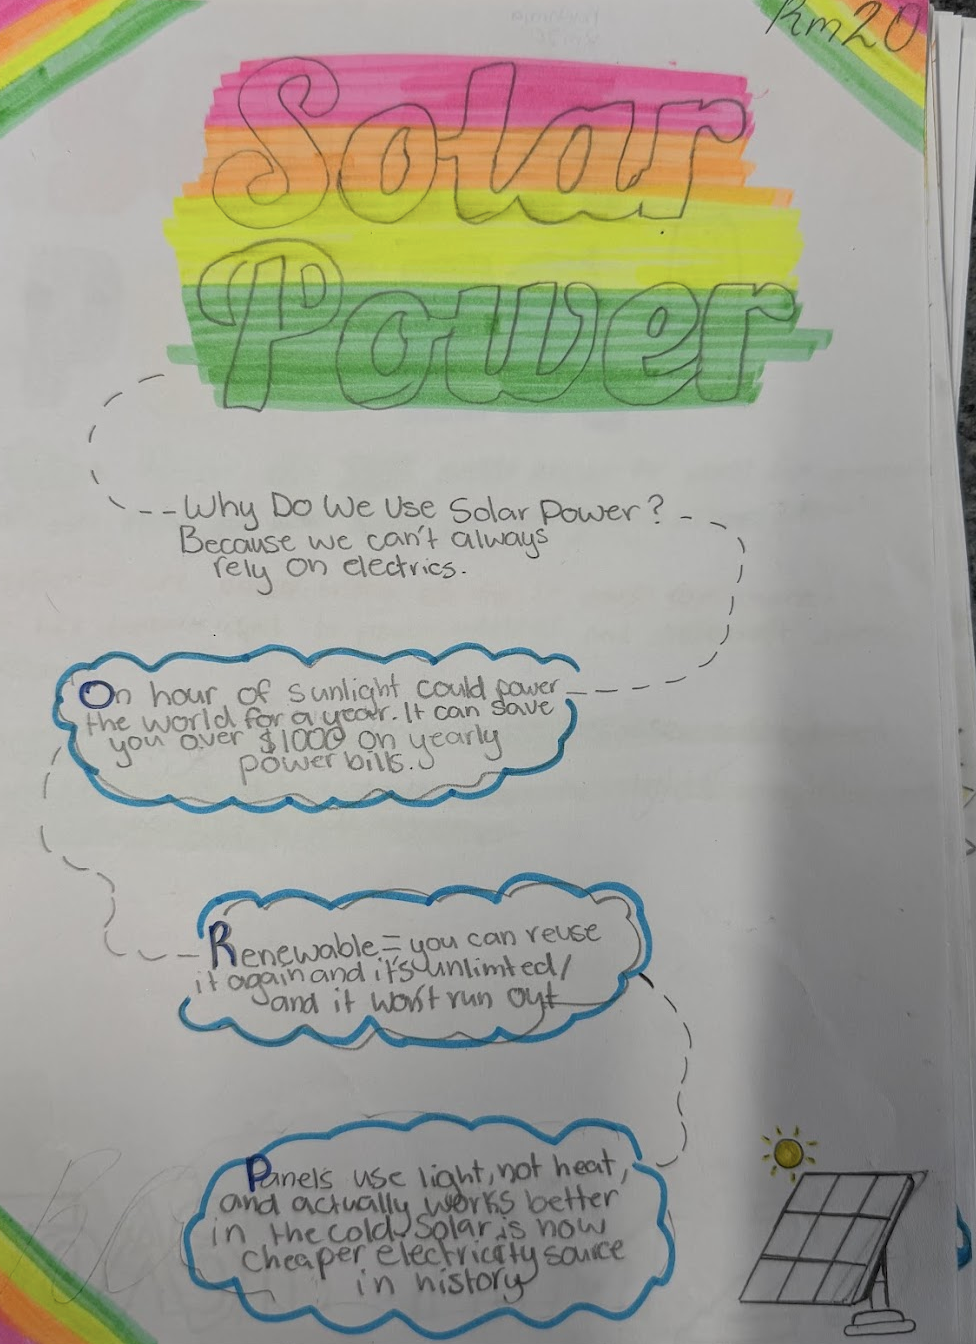 Rm20
Solar
Power
Why Do We Use Solar Power?
Because we can't always
rely on electrics.
On hour of sunlight could power
the world for a year. It can save
you over $1000 on yearly
power bills.
Renewable = you can reuse
it again and it's unlimted/
and it won't run out
Panels use light, not heat,
and actually works better
in the cold. Solar is now
cheaper electricity source
in history